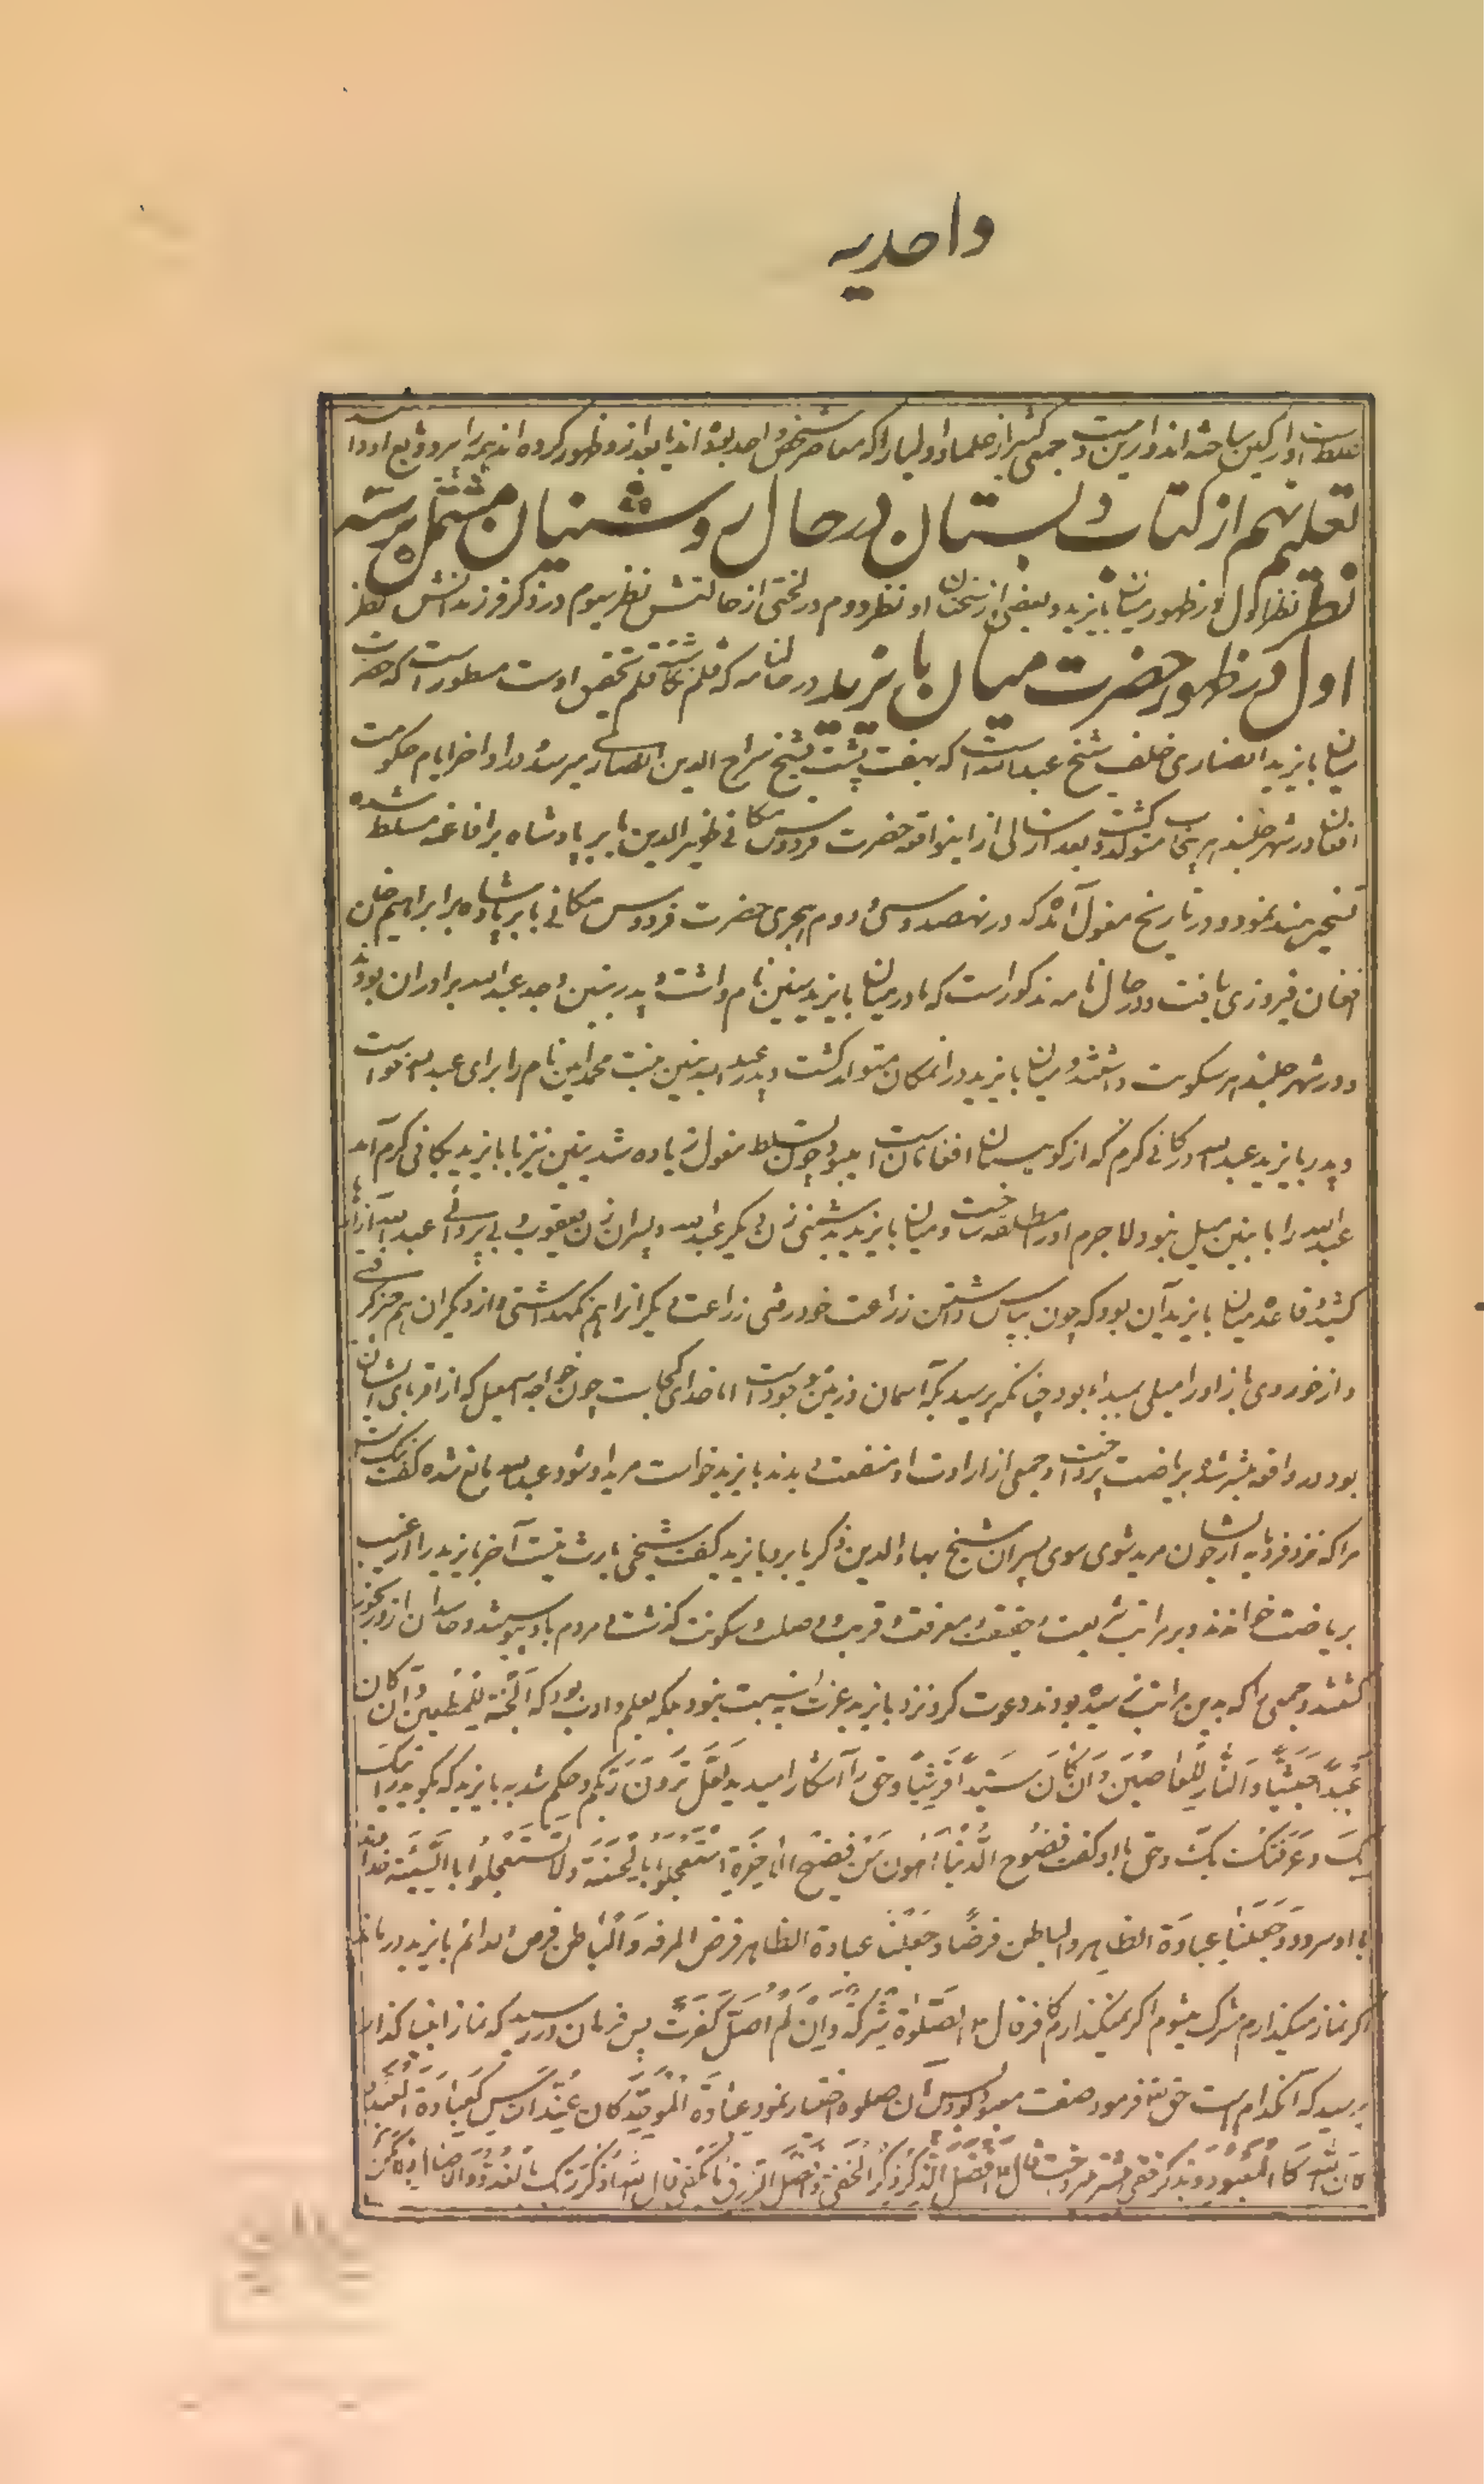 واحدیه
غلط است او را کین ساخته اند و ازین جمعی کثیر از علما و اولیا را که معاصر شخص واحد بوده اند یا بعد ازو ظهور کرده اند
تعلیم نهم از کتاب دبستان در حال روشنیان مشتمل بر سه
نظر نظر اول در ظهور میان بایزید و بعضی از سخنان او نظر دوم در لختی از حالتش نظر سیوم در ذکر فرزندانش نظر
اول در ظهور حضرت میان بایزید در حالنامه که قلم تحقیق اوست مسطور است که حضرت
میان بایزید انصاری خلف شیخ عبدالله است که بهفت پشت بشیخ سراج الدین انصاری میرسد و در اواخر ایام حکومت
افغانان در شهر جلندهر پنجاب متولد گشت و بعد از سالی از اینواقعه حضرت فردوس مکانی ظهیرالدین بابر پادشاه بر افاغنه مسلط شده
تسخیر هند نمود و در تاریخ مغول آمده که در نهصد و سی و دوم هجری حضرت فردوس مکانی بابر پادشاه بر ابراهیم خان
افغان فیروزی یافت و در حال نامه مذکور است که مادر میان بایزید بنین نام داشت و پدر بنین و جد عبدالله برادران بودند
و در شهر جلندهر سکونت داشتند و میان بایزید در انمکان متولد گشت و پدر عبدالله بنین بنت محمد امین نام را برای عبدالله خواست
و پدر بایزید عبدالله در کانی کرم که از کوهستان افغانان است میبود چون تسلط مغول زیاده شد بنین نیز با بایزید بکانی کرم آمد
عبدالله را با بنین میل نبود لاجرم او را مطلقه ساخت و میان بایزید بدشمنی زن دیگر عبدالله و پسران زن یعقوب و بی پروائی عبدالله آزارها
کشید و قاعده میان بایزید آن بود که چون بپاس داشتن زراعت خود رفتی زراعت دیگرانرا هم نگهداشتی و از دیگران هم خبر گرفتی
و از خوردی باز او را میلی بمبداء بود چنانکه پرسید که آسمان و زمین موجود است اما خدای کجاست چون خواجه اسمعیل که از اقربای ایشان
بود در واقعه مبشر شد و بریاضت پرداخت و جمعی از ارادت او منفعت دیدند بایزید خواست مرید او شود عبدالله مانع شده گفت ننگ است
مرا که نزد فرومایه ایشان مرید شوی سوی پسران شیخ بهاءالدین ذکریا برو بایزید گفت شیخی بارث نیست آخر بایزید را از غیب
بریاضت خواندند و بر مراتب شریعت و حقیقت و معرفت و قربت و وصلت و سکونت گذشت مردم بادو پیوستند و حاسدان ازو رنجور
گشتند و جمعی را که بدین مراتب نرسیده بودند دعوت کرد نزد بایزید عزت به نسبت نبود بلکه بعلم و ادب بود که الجنة للمطیعین و ان کان
عبداً حبشیاً والنار للعاصین و ان کان سیداً قریشیاً و حق را آشکارا میدید ترون ربکم و حکم شد به بایزید که بگو
بک و عرفتک بک و حق با او گفت فضوح الدنیا اهون من فضوح الاخرة استعجلوا بالحسنة ولا تستعجلوا بالسیئة خداوند
با او سرود و جعلنا عبادة الظاهر والباطن فرضاً و جعلنا عبادة الظاهر فرض والباطن فرض الدائم بایزید درماند
اگر نماز میگذارم مشرک میشوم اگر نمیگذارم کافر قال الصلوة شرکة و ان لم اصل کفرت پس فرمان در رسید که نماز انبیا گذار
پرسید که آن کدام است حق تعالی فرمود صفت معبود پس آن صلوه اختیار نمود عبادة الموحد کان عند الناس کعبادة العباد
کان عند الله کالمعبود و بذکر خفی قال افضل الذکر ذکر الخفی و افضل الرزق ما یکفی قال الله اذکر ربک بالغدو والاصال